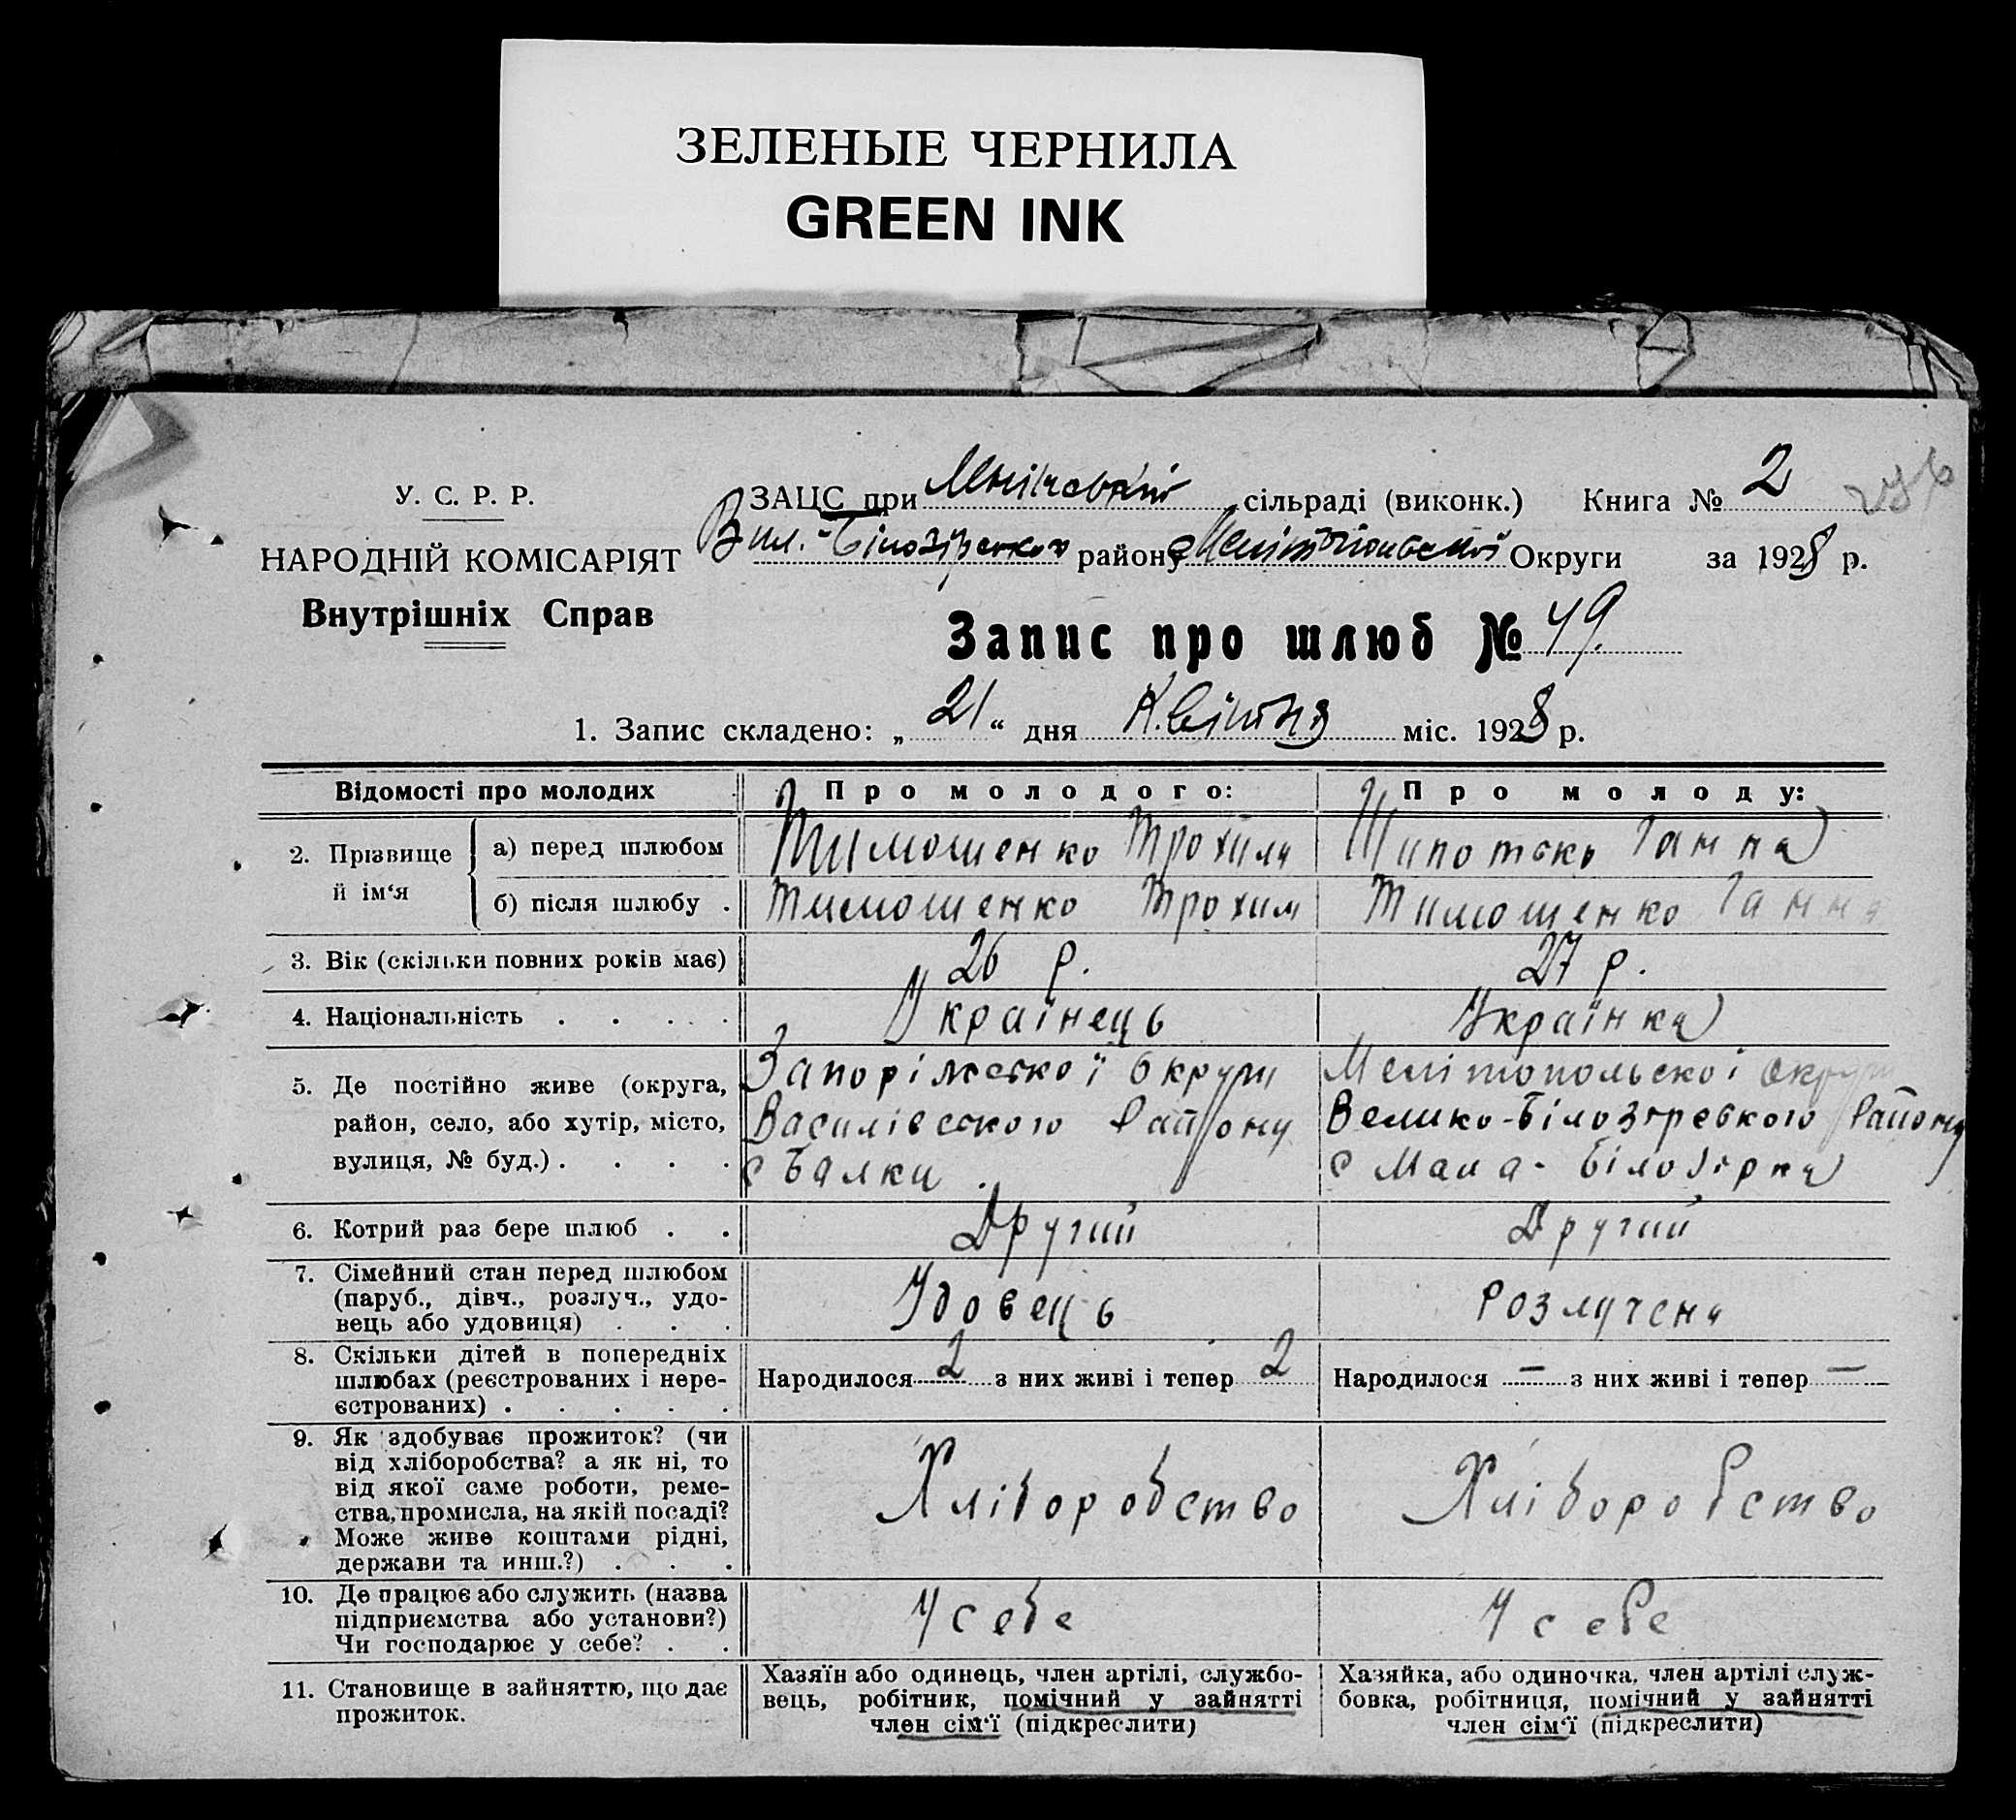 ЗЕЛЕНЫЕ ЧЕРНИЛА
GREEN INK
У. С. Р. Р.
НАРОДНІЙ КОМІСАРІЯТ
Внутрішніх Справ
ЗАЦС при сільраді (виконк.) Книга № 2
Вел.-Білозірского району Мелітопольської Округи за 1928 р.
Запис про шлюб № 49.
1. Запис складено: „21“ дня Квітня міс. 1928 р.
Відомості про молодих Про молодого: Про молоду:
2. Прізвище й ім‘я
а) перед шлюбом Тимошенко Трохим Ганна
б) після шлюбу . Тимошенко Трохим Тимошенко Ганна
3. Вік (скільки повних років має) 26 р. 27 р.
4. Національність . . . . . Українець Українка
5. Де постійно живе (округа,
район, село, або хутір, місто,
вулиця, № буд.) . . . .
Запоріжської округи
Василівского Району
с Балки .
Мелітопольскої округи
Велико-Білозірського Району
с Мала-Білозірка
6. Котрий раз бере шлюб . . Другий Другий
7. Сімейний стан перед шлюбом
(паруб., дівч., розлуч., удо-
вець або удовиця) . . .
Удовець
Розлучена
8. Скільки дітей в попередніх
шлюбах (реєстрованих і нере-
єстрованих) . . . . .
Народилося 2 з них живі і тепер 2
Народилося — з них живі і тепер —
9. Як здобуває прожиток? (чи
від хліборобства? а як ні, то
від якої саме роботи, реме-
ства, промисла, на якій посаді?
Може живе коштами рідні,
держави та инш.?) . . .
Хліборобство
Хліборобство
10. Де працює або служить (назва
підприємства або установи?)
Чи господарює у себе? . .
У себе
У себе
11. Становище в зайняттю, що дає
прожиток.
Хазяїн або одинець, член артілі, службо-
вець, робітник, помічний у зайнятті
член сім‘ї (підкреслити)
Хазяйка, або одиночка, член артілі служ-
бовка, робітниця, помічний у зайнятті
член сім‘ї (підкреслити)